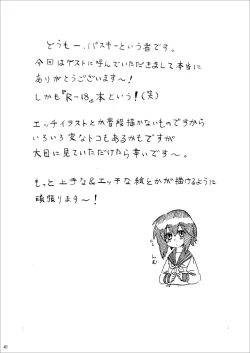 どうもー、パスキーという者です。
今回はゲストに呼んでいただきまして本当に
ありがとうございます〜！
しかも『R-18』本という！(笑)
エッチイラストとか普段描かないものですから
いろいろ変なトコもあるかもですが
大目に見ていただけたら幸いです〜。
もっと上手な＆エッチな絵とかが描けるように
頑張ります〜！